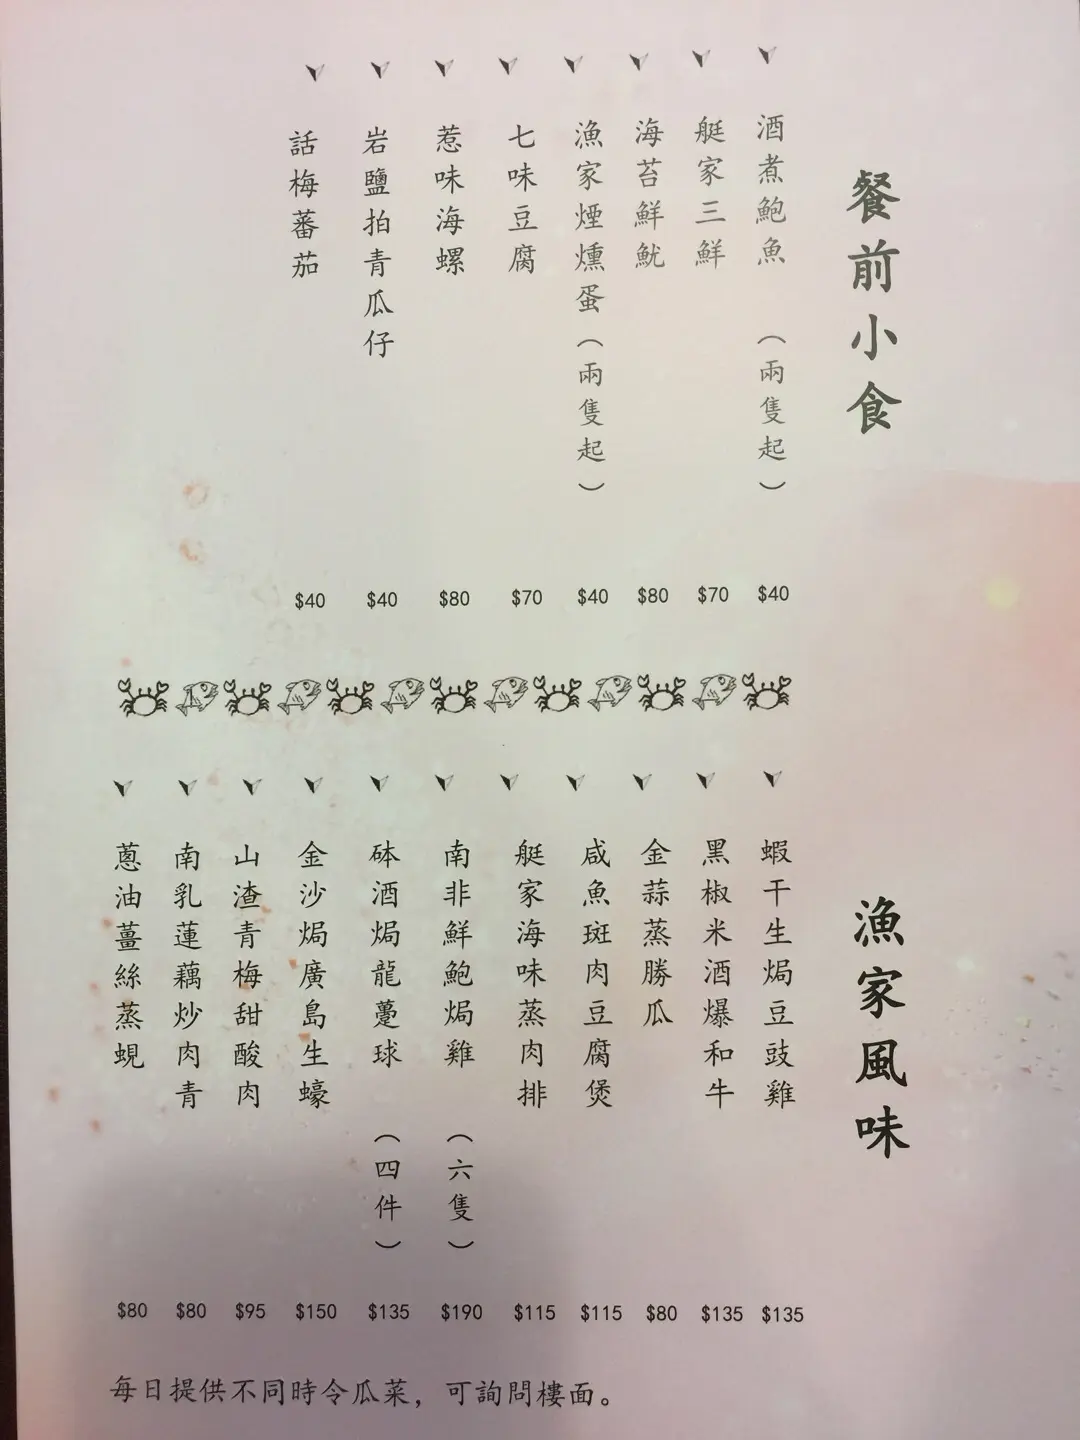 餐前小食
酒煮鮑魚（兩隻起） $40
艇家三鮮 $70
海苔鮮魷 $80
漁家煙燻蛋（兩隻起） $40
七味豆腐 $70
惹味海螺 $80
岩鹽拍青瓜仔 $40
話梅蕃茄 $40
漁家風味
蝦干生焗豆豉雞 $135
黑椒米酒爆和牛 $135
金蒜蒸勝瓜 $80
咸魚斑肉豆腐煲 $115
艇家海味蒸肉排 $115
南非鮮鮑焗雞（六隻） $190
砵酒焗龍躉球（四件） $135
金沙焗廣島生蠔 $150
山渣青梅甜酸肉 $95
南乳蓮藕炒肉青 $80
蔥油薑絲蒸蜆 $80
每日提供不同時令瓜菜，可詢問樓面。